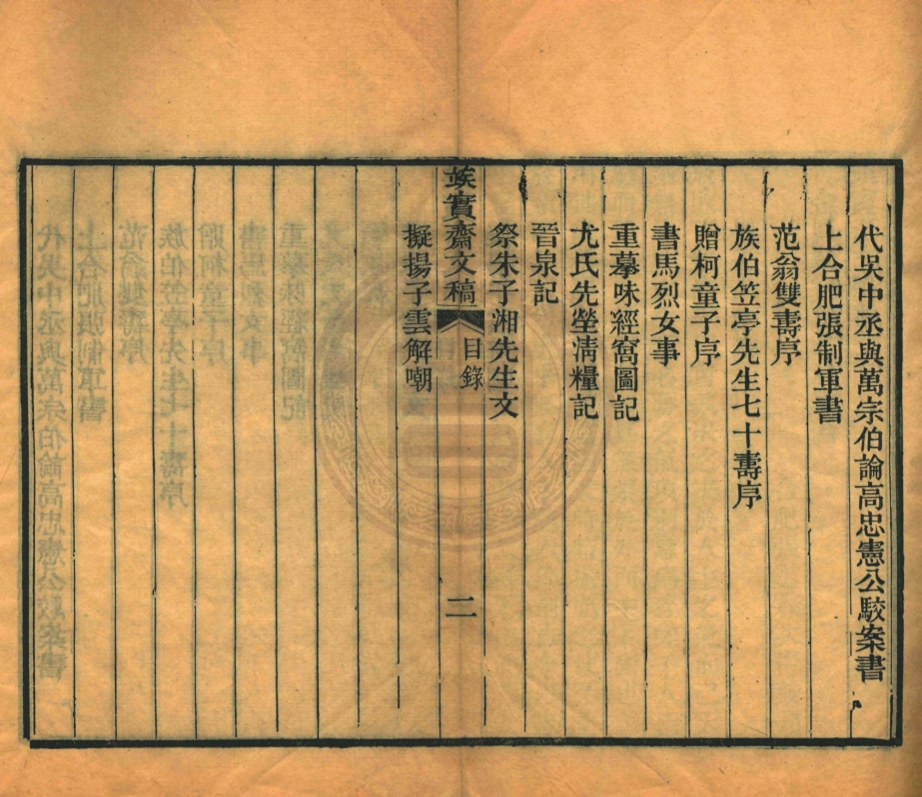 代吳中丞與萬宗伯論高忠憲公駮案書
上合肥張制軍書
范翁雙壽序
族伯笠亭先生七十壽序
贈柯童子序
書馬烈女事
重摹味經窩圖記
尤氏先塋淸糧記
晉泉記
祭朱子湘先生文
蔟實齋文稿 目錄 二
擬揚子雲解嘲